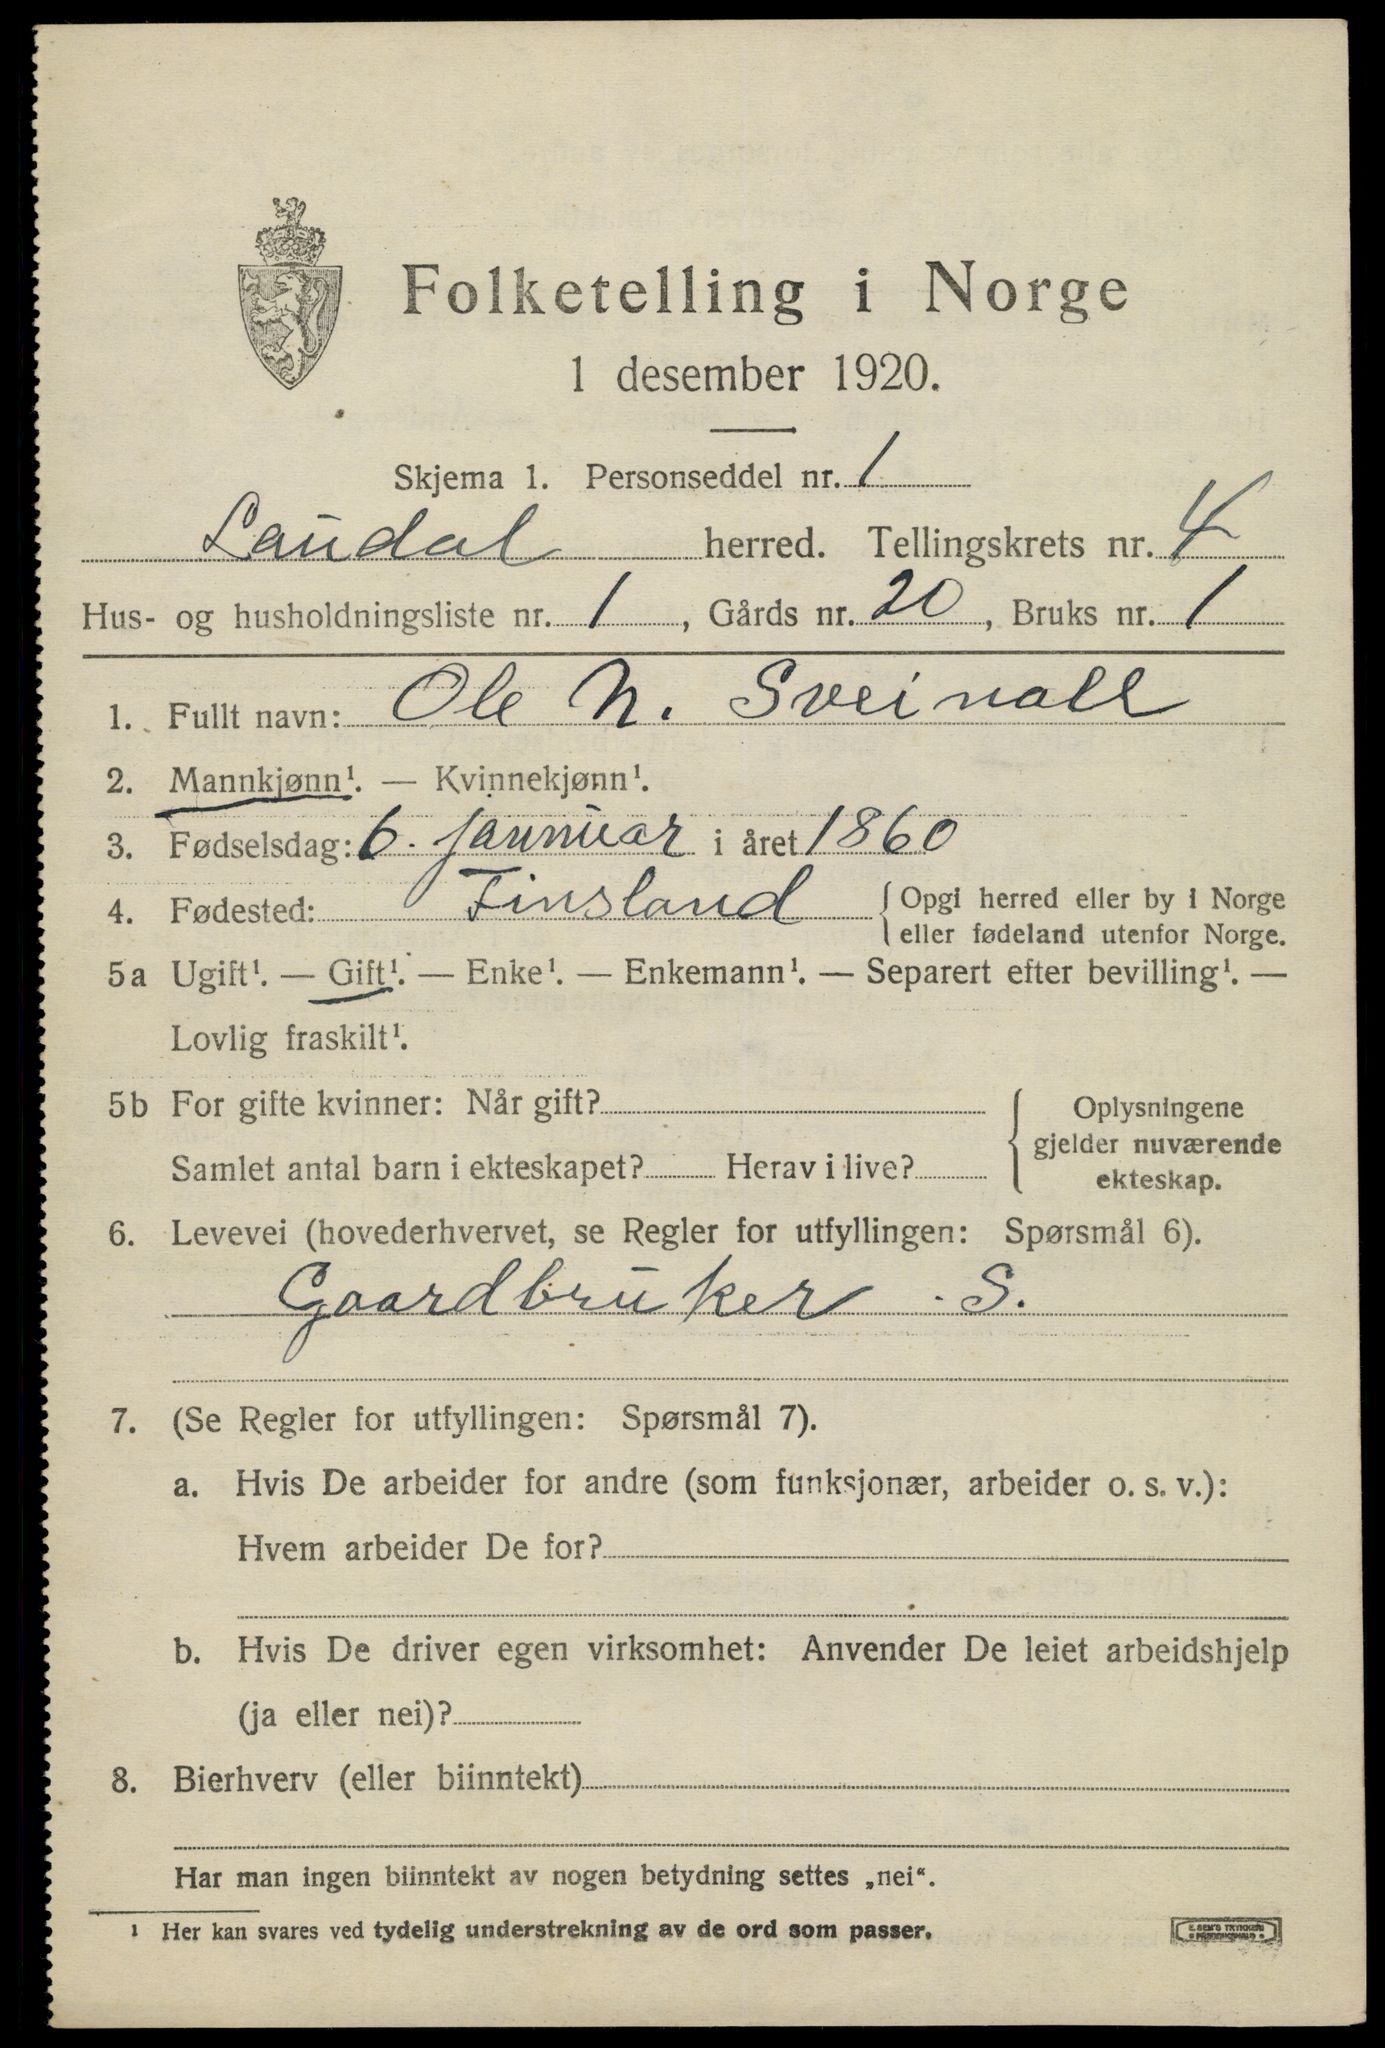 Folketelling i Norge
1 desember 1920.
Skjema 1. Personseddel nr. 1
Laudal herred. Tellingskrets nr. 4
Hus- og husholdningsliste nr. 1, Gårds nr. 20, Bruks nr. 1
1. Fullt navn: Ole N. Sveinall
2. Mannkjønn¹. — Kvinnekjønn¹.
3. Fødselsdag: 6. jannuar i året 1860
4. Fødested: Finsland {Opgi herred eller by i Norge
eller fødeland utenfor Norge.
5a Ugift¹. — Gift¹. — Enke¹. — Enkemann¹. — Separert efter bevilling¹. —
Lovlig fraskilt¹.
5b For gifte kvinner: Når gift?
Samlet antal barn i ekteskapet? Herav i live?
Oplysningene
gjelder nuværende
ekteskap.
6. Levevei (hovederhvervet, se Regler for utfyllingen: Spørsmål 6).
Gaardbruker. S.
7. (Se Regler for utfyllingen: Spørsmål 7).
a. Hvis De arbeider for andre (som funksjonær, arbeider o. s. v.):
Hvem arbeider De for?
b. Hvis De driver egen virksomhet: Anvender De leiet arbeidshjelp
(ja eller nei)?
8. Bierhverv (eller biinntekt)
Har man ingen biinntekt av nogen betydning settes „nei“.
¹ Her kan svares ved tydelig understrekning av de ord som passer.
E. SEM'S TRYKKERI
FREDRIKSHALD